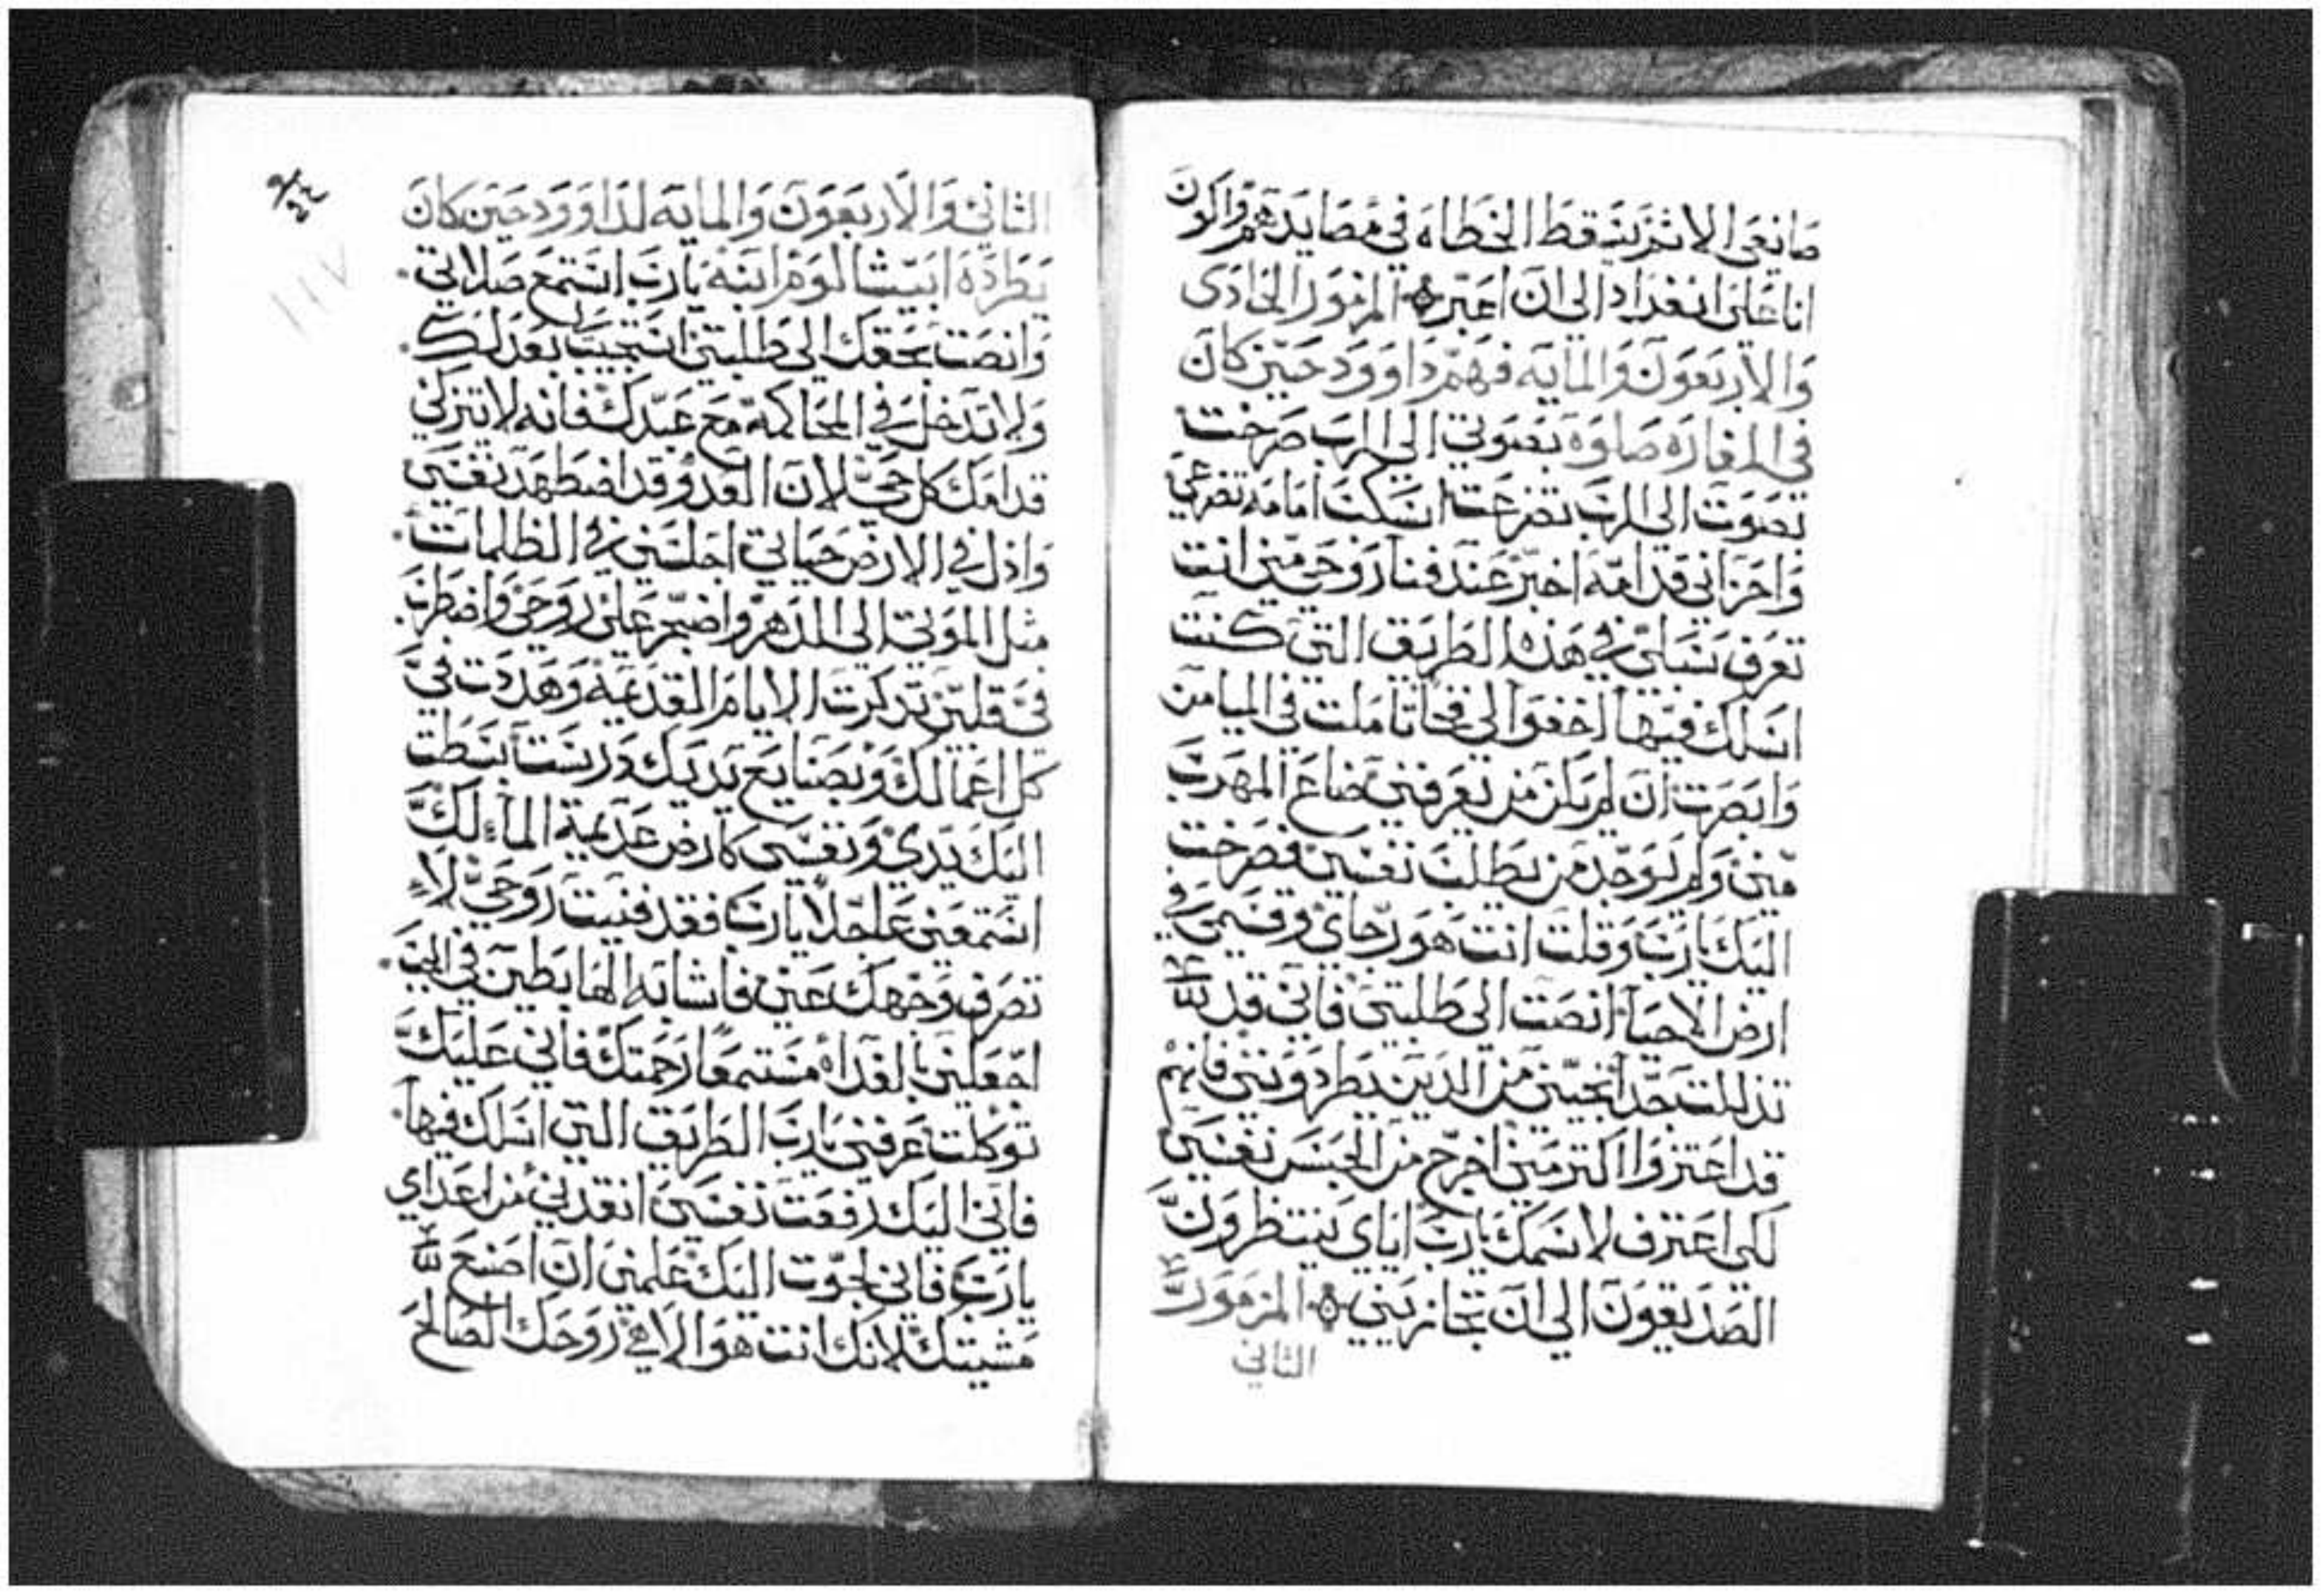 صانعى الاثم يسقط الخطاه فى مصايدهم واكون
انا على انفراد الى ان اعبر المزمور الحادى
والاربعون والمايه فهم داوود حين كان
فى المغاره صلوه بصوتي الى الرب صرخت
بصوت الى الرب تضرعت اسكب امامه تضرعي
واحزاني قدامه اخبر عند فنا روحي مني انت
تعرف سبلى في هذه الطريق التي كنت
اسلك فيها اخفوا لى فخا تاملت فى الميامن
وابصرت ان لم يكن من يعرفني ضاع المهرب
مني ولم يوجد من يطلب نفسي فصرخت
اليك يارب وقلت انت هو رجاي وقسمي فى
ارض الاحيا انصت الى طلبتي فاني قد
تذللت جدا نجيني من الذين يطردونني فانهم
قد اعتزوا اكتر مني اخرج من الحبس نفسي
لكى اعترف لاسمك يارب اياي ينتظرون
الصديقون الى ان تجازيني المزمور
الثاني
9/22
١١٧
الثاني والاربعون والمايه لداوود حين كان
يطرده ابيشالوم ابنه يارب استمع صلاتي
وانصت بحقك الى طلبتي استجيب لي بعدلك
ولا تدخل في المحاكمة مع عبدك فانه لا يتزكى
قدامك كل حي لان العدو قد اضطهد نفسي
واذل في الارض حياتي اجلسني في الظلمات
مثل الموتي الى الدهر واضجر على روحي واضطرب
في قلبي تذكرت الايام القديمه وهددت في
كل اعمالك وبصنايع يديك درست بسطت
اليك يدي ونفسى كارض عديمة الماء لك
استمعني عاجلا يارب فقد فنيت روحي لا
تصرف وجهك عني فاشابه الهابطين في الجب
اجعلني بالغداه مستمعا رحمتك فاني عليك
توكلت عرفني يارب الطريق التي اسلك فيها
فاني اليك رفعت نفسي انقذني من اعداي
يارب فاني لجوت اليك علمني ان اصنع
مشيتك لانك انت هو الاهي روحك الصالح